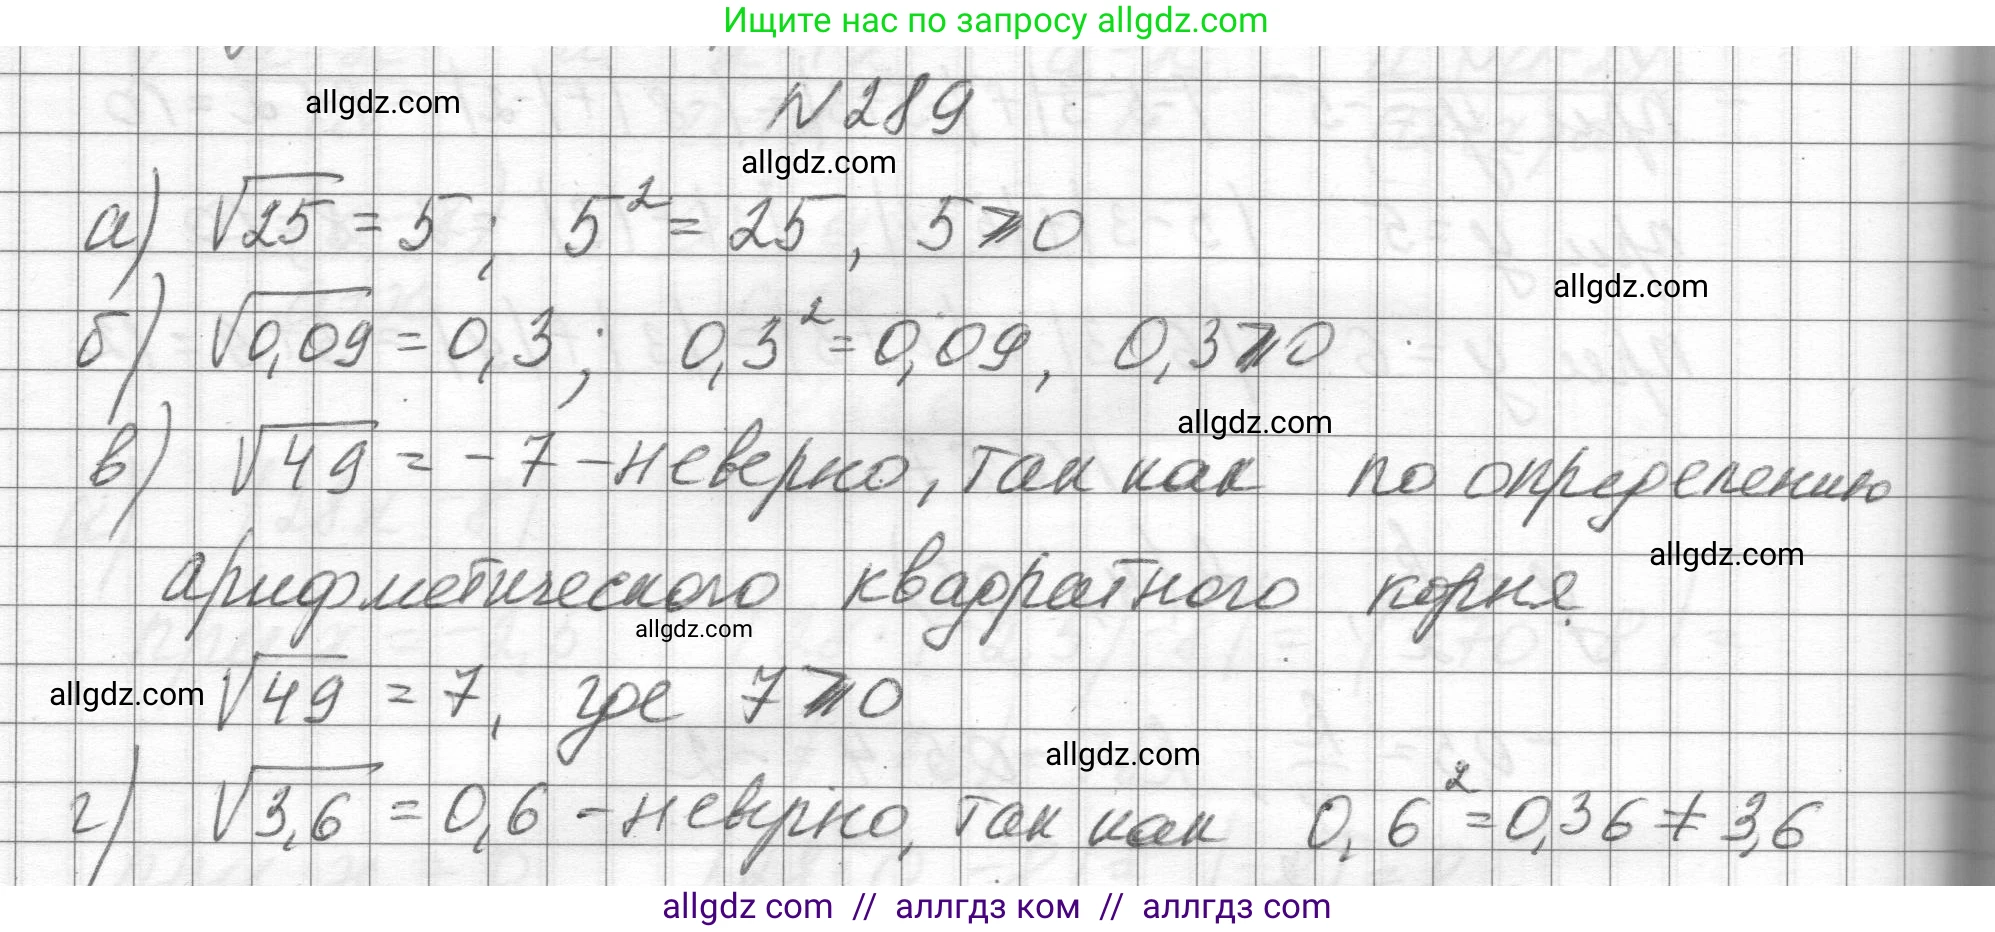 Ищите нас по запросу allgdz.com
allgdz.com
N 289
allgdz.com
а) √25 = 5; 5² = 25, 5 ⩾ 0
allgdz.com
б) √0,09 = 0,3; 0,3² = 0,09, 0,3 ⩾ 0
allgdz.com
в) √49 = -7 - неверно, так как по определению
allgdz.com
арифметического квадратного корня.
allgdz.com
allgdz.com
√49 = 7, где 7 ⩾ 0
allgdz.com
г) √3,6 = 0,6 - неверно, так как 0,6² = 0,36 ≠ 3,6
allgdz com // аллгдз ком // аллгдз com